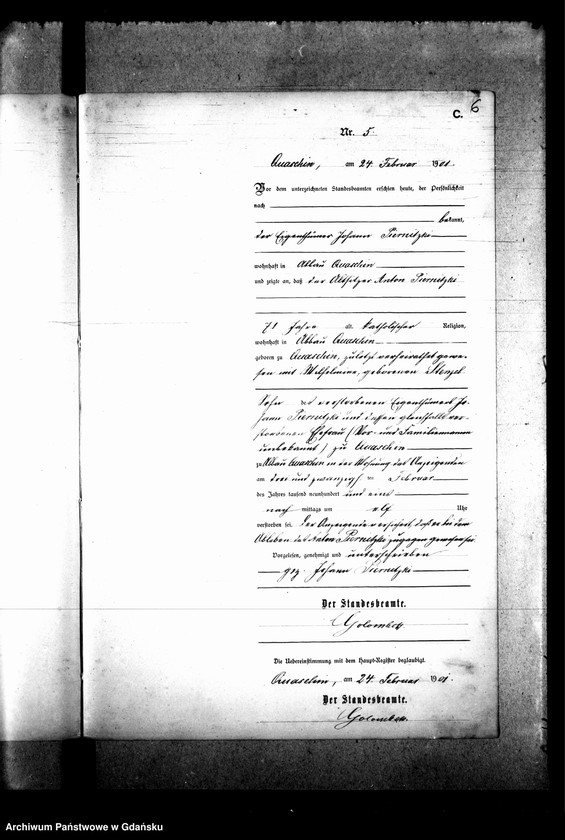 C. 6
Nr. 5
Quaschin, am 24. Februar 1901.
Vor dem unterzeichneten Standesbeamten erschien heute, der Persönlichkeit
nach
bekannt,
der Eigenthümer Johann Piernitzki
wohnhaft in Abbau Quaschin
und zeigte an, daß der Altsitzer Anton Piernitzki
71 Jahre alt, katholischer Religion,
wohnhaft in Abbau Quaschin
geboren zu Quaschin, zuletzt verheirathet gewe-
sen mit Wilhelmine, geborenen Stenzel
Sohn des verstorbenen Eigenthümers Jo-
hann Piernitzki und dessen gleichfalls ver-
storbenen Ehefrau (Vor- und Familiennamen
unbekannt) zu Quaschin
zu Abbau Quaschin in der Wohnung des Anzeigenden
am drei und zwanzigsten Februar
des Jahres tausend neunhundert und eins
nach mittags um elf Uhr
verstorben sei. Der Anzeigende versichert, daß er bei dem
Ableben des Anton Piernitzki zugegen gewesen sei
Vorgelesen, genehmigt und unterschrieben
gez. Johann Piernitzki
Der Standesbeamte.
Golombek
Die Uebereinstimmung mit dem Haupt-Register beglaubigt.
Quaschin, am 24. Februar 1901.
Der Standesbeamte.
Golombek.
Archiwum Państwowe w Gdańsku